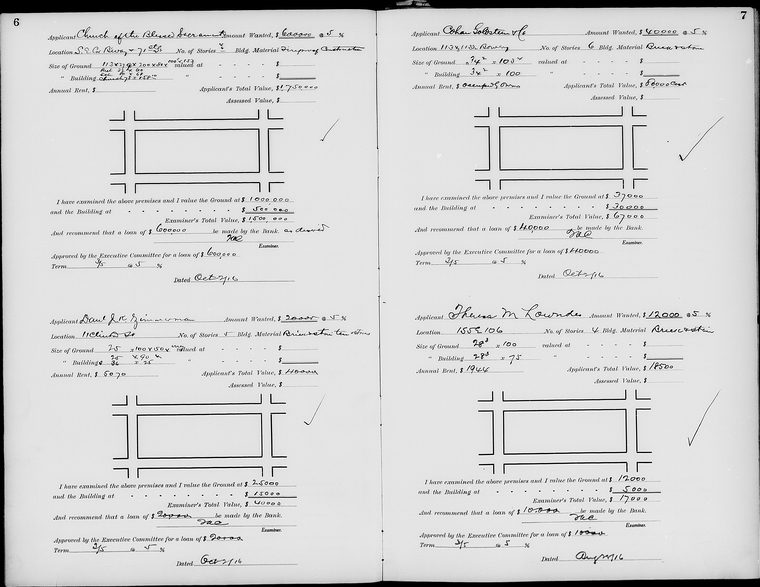 6
Applicant Church of the Blessed Sacrament Amount Wanted, $ 600000 @ 5 %
Location S.E. Co Bway + 71 st No. of Stories Bldg. Material Fireproof Construction
Size of Ground valued at - - - - $
" Building " - - - - $
Annual Rent, $ Applicant's Total Value, $ 1750000
Assessed Value, $
I have examined the above premises and I value the Ground at $ 1000,000
and the Building at - - - - - - - - $ 500 000
Examiner's Total Value, $ 1,500,000
And recommend that a loan of $ 600000 be made by the Bank. as desired
Examiner.
Approved by the Executive Committee for a loan of $ 600,000
Term 3/5 @ 5 %
Dated Oct 2/16
Applicant Amount Wanted, $ 20000 @ 5 %
Location 11 Clinton St No. of Stories 5 Bldg. Material
Size of Ground 25 x 100 valued at - - - - $
" Building " - - - - $
Annual Rent, $ 5070 Applicant's Total Value, $ 40000
Assessed Value, $
I have examined the above premises and I value the Ground at $ 25000
and the Building at - - - - - - - - $ 15000
Examiner's Total Value, $ 40000
And recommend that a loan of $ 20000 be made by the Bank.
Examiner.
Approved by the Executive Committee for a loan of $ 20000
Term 3/5 @ 5 %
Dated Oct 2/16
7
Applicant Cohen Goldstein & Co Amount Wanted, $ 40000 @ 5 %
Location Bowery No. of Stories 6 Bldg. Material Brick & stone
Size of Ground valued at - - - - $
" Building 34² x 100 " - - - - $
Annual Rent, $ Applicant's Total Value, $ 80000
Assessed Value, $
I have examined the above premises and I value the Ground at $ 37000
and the Building at - - - - - - - - $ 30000
Examiner's Total Value, $ 67000
And recommend that a loan of $ 40,000 be made by the Bank.
Examiner.
Approved by the Executive Committee for a loan of $ 40000
Term 3/5 @ 5 %
Dated Oct 2/16
Applicant Theresa M Lowndes Amount Wanted, $ 12000 @ 5 %
Location 155 E 106 No. of Stories 4 Bldg. Material Brick & stone
Size of Ground 28³ x 100 valued at - - - - $
" Building 28³ x 75 " - - - - $
Annual Rent, $ 1944 Applicant's Total Value, $ 18500
Assessed Value, $
I have examined the above premises and I value the Ground at $ 12000
and the Building at - - - - - - - - $ 5000
Examiner's Total Value, $ 17000
And recommend that a loan of $ 10,000 be made by the Bank.
Examiner.
Approved by the Executive Committee for a loan of $ 10000
Term 3/5 @ 5 %
Dated